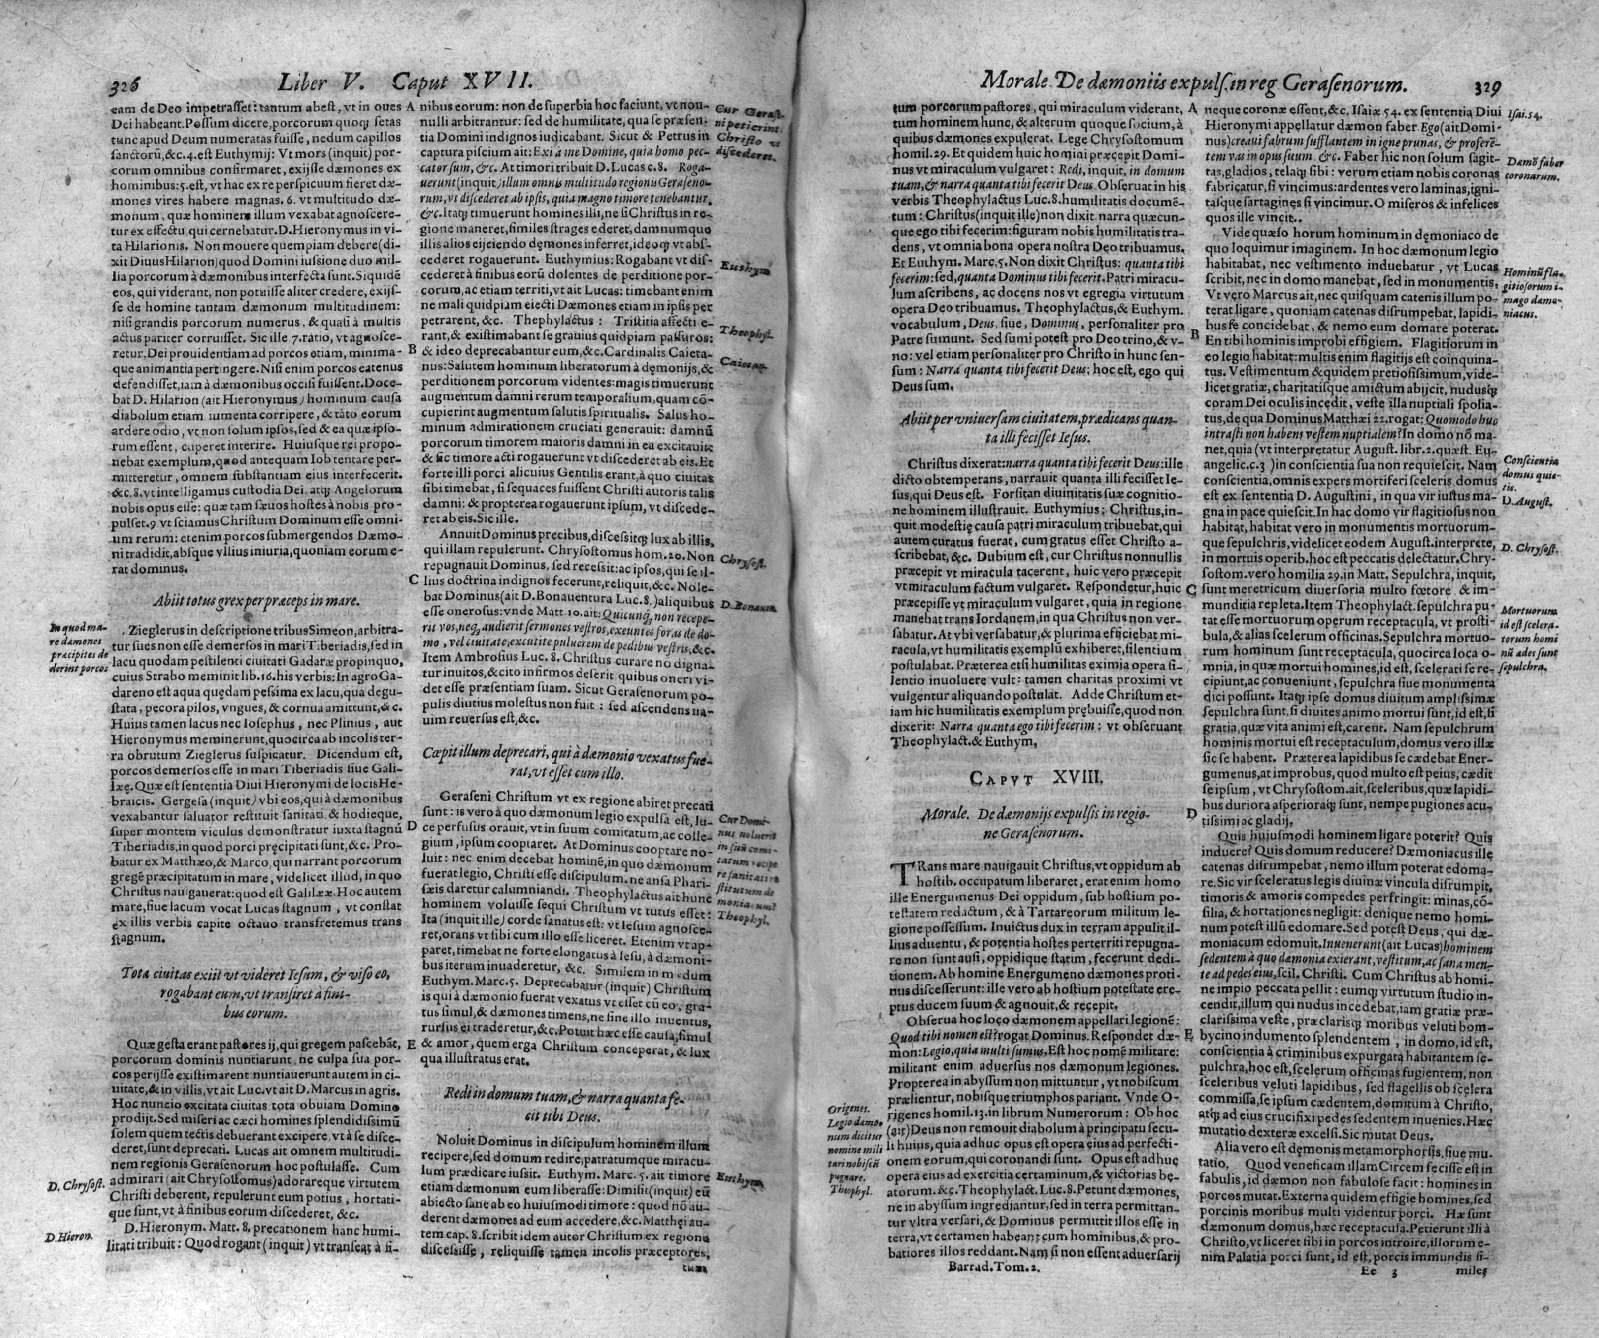 326 Liber V. Caput XVII.
eam de Deo impetraſſet: tantum abeſt, vt in oues
Dei habeant. Poſſum dicere, porcorum quoq; ſetas
tunc apud Deum numeratas fuiſſe, nedum capillos
ſanctorũ, &c. 4. eſt Euthymij: Vt mors (inquit) por-
corum omnibus confirmaret, exijſſe dæmones ex
hominibus: 5. eſt, vt hac ex re perſpicuum fieret dæ-
mones vires habere magnas. 6. vt multitudo dæ-
monum, quæ hominem illum vexabat agnoſcere-
tur ex effectu qui cernebatur. D. Hieronymus in vi-
ta Hilarionis. Non mouere quempiam debere (di-
xit Diuus Hilarion) quod Domini iuſſione duo mil-
lia porcorum à dæmonibus interfecta ſunt. Siquidẽ
eos, qui viderant, non potuiſſe aliter credere, exijſ-
ſe de homine tantam dæmonum multitudinem:
niſi grandis porcorum numerus, & quaſi à multis
actus pariter corruiſſet. Sic ille 7. ratio, vt agnoſce-
retur, Dei prouidentiam ad porcos etiam, minima-
que animantia pertingere. Niſi enim porcos eatenus
defendiſſet, iam à dæmonibus occiſi fuiſſent. Doce-
bat D. Hilarion (ait Hieronymus) hominum cauſa
diabolum etiam iumenta corripere, & tãto eorum
ardere odio, vt non ſolum ipſos, ſed & ea quæ ipſo-
rum eſſent, cuperet interire. Huiuſque rei propo-
nebat exemplum, quod antequam Iob tentare per-
mitteretur, omnem ſubſtantiam eius interfecerit.
&c. 8. vt intelligamus cuſtodia Dei, atq; Angelorum
nobis opus eſſe: quæ tam ſæuos hoſtes à nobis pro-
pulſet. 9. vt ſciamus Chriſtum Dominum eſſe omni-
um rerum: etenim porcos ſubmergendos Dæmo-
ni tradidit, abſque vllius iniuria, quoniam eorum e-
rat dominus.
Abiit totus grex per præceps in mare.
In quod ma-
re dæmones
præcipites de
derint porcos
Zieglerus in deſcriptione tribus Simeon, arbitra-
tur ſues non eſſe demerſos in mari Tiberiadis, ſed in
lacu quodam peſtilenti ciuitati Gadaræ propinquo,
cuius Strabo meminit lib. 16. his verbis: In agro Ga-
dareno eſt aqua quędam peſſima ex lacu, qua degu-
ſtata, pecora pilos, vngues, & cornua amittunt, &c.
Huius tamen lacus nec Ioſephus, nec Plinius, aut
Hieronymus meminerunt, quocirca ab incolis ter-
ra obrutum Zieglerus ſuſpicatur. Dicendum eſt,
porcos demerſos eſſe in mari Tiberiadis ſiue Gali-
læę. Quæ eſt ſententia Diui Hieronymi de locis He-
braicis. Gergeſa (inquit) vbi eos, qui à dæmonibus
vexabantur ſaluator reſtituit ſanitati, & hodieque,
ſuper montem viculus demonſtratur iuxta ſtagnũ
Tiberiadis, in quod porci pręcipitati ſunt, &c. Pro-
batur ex Matthæo, & Marco, qui narrant porcorum
gregẽ præcipitatum in mare, videlicet illud, in quo
Chriſtus nauigauerat: quod eſt Galilææ. Hoc autem
mare, ſiue lacum vocat Lucas ſtagnum, vt conſtat
ex illis verbis capite octauo tranſfretemus trans
ſtagnum.
Tota ciuitas exiit vt videret Ieſum, & viſo eo,
rogabant eum, vt tranſiret à fini-
bus eorum.
Quæ geſta erant paſtores ij, qui gregem paſcebãt,
porcorum dominis nuntiarunt, ne culpa ſua por-
cos perijſſe exiſtimarent nuntiauerunt autem in ci-
uitate, & in villis, vt ait Luc. vt ait D. Marcus in agris.
Hoc nuncio excitata ciuitas tota obuiam Domino
prodijt. Sed miſeri ac cæci homines ſplendidiſſimũ
ſolem quem tectis debuerant excipere, vt à ſe diſce-
deret, ſunt deprecati. Lucas ait omnem multitudi-
nem regionis Geraſenorum hoc poſtulaſſe. Cum
D. Chryſoſt.
admirari (ait Chryſoſtomus) adorareque virtutem
Chriſti deberent, repulerunt eum potius, hortati-
que ſunt, vt à finibus eorum diſcederet, &c.
D. Hieron.
D. Hieronym. Matt. 8, precationem hanc humi-
litati tribuit: Quod rogant (inquit) vt tranſeat à fi-
A nibus eorum: non de ſuperbia hoc faciunt, vt non-
nulli arbitrantur: ſed de humilitate, qua ſe præſen-
tia Domini indignos iudicabant. Sicut & Petrus in
captura piſcium ait: Exi à me Domine, quia homo pec-
cator ſum, &c. At timori tribuit D. Lucas c. 8. Roga-
uerunt (inquit) illum omnis multitudo regionis Geraſeno-
rum, vt diſcederet ab ipſis, quia magno timore tenebantur,
&c. Itaq; timuerunt homines illi, ne ſi Chriſtus in re-
gione maneret, ſimiles ſtrages ederet, damnumque
illis alios eijciendo dęmones inferret, ideoq; vt abſ-
cederet rogauerunt. Euthymius: Rogabant vt diſ-
cederet à finibus eorũ dolentes de perditione por-
corum, ac etiam territi, vt ait Lucas: timebant enim
ne mali quidpiam eiecti Dæmones etiam in ipſis per
petrarent, &c. Thephylactus: Triſtitia affecti e-
rant, & exiſtimabant ſe grauius quidpiam paſſuros:
B & ideo deprecabantur eum, &c. Cardinalis Caieta-
nus: Salutem hominum liberatorum à dęmonijs, &
perditionem porcorum videntes: magis timuerunt
augmentum damni rerum temporalium, quam cõ-
cupierint augmentum ſalutis ſpiritualis. Salus ho-
minum admirationem cruciati generauit: damnũ
porcorum timorem maioris damni in ea excitauit:
& ſic timore acti rogauerunt vt diſcederet ab eis. Et
forte illi porci alicuius Gentilis erant, à quo ciuitas
ſibi timebat, ſi ſequaces fuiſſent Chriſti autoris talis
damni: & propterea rogauerunt ipſum, vt diſcede-
ret ab eis. Sic ille.
Annuit Dominus precibus, diſceſſitq; lux ab illis,
qui illam repulerunt. Chryſoſtomus hom. 20. Non
repugnauit Dominus, ſed receſsit: ac ipſos, qui ſe il-
C lius doctrina indignos fecerunt, reliquit, &c. Nole-
bat Dominus (ait D. Bonauentura Luc. 8.) aliquibus
eſſe oneroſus: vnde Matt. 10. ait: Quicunq; non recepe-
rit vos, neq; audierit ſermones veſtros, exeuntes foras de do-
mo, vel ciuitate, excutite puluerem de pedibus veſtris, &c.
Item Ambroſius Luc. 8. Chriſtus curare no digna-
tur inuitos, & cito infirmos deſerit quibus oneri vi-
det eſſe præſentiam ſuam. Sicut Geraſenorum po-
pulis diutius moleſtus non fuit: ſed aſcendens na-
uim reuerſus eſt, &c.
Cœpit illum deprecari, qui à dæmonio vexatus fue-
rat, vt eſſet cum illo.
Geraſeni Chriſtum vt ex regione abiret precati
ſunt: is vero à quo dæmonum legio expulſa eſt, lu-
D ce perfuſus orauit, vt in ſuum comitatum, ac colle-
gium, ipſum cooptaret. At Dominus cooptare no-
luit: nec enim decebat hominẽ, in quo dæmonum
fuerat legio, Chriſti eſſe diſcipulum. ne anſa Phari-
ſæis daretur calumniandi. Theophylactus ait hunc
hominem voluiſſe ſequi Chriſtum vt tutus eſſet:
Ita (inquit ille) corde ſanatus eſt: vt Ieſum agnoſce-
ret, orans vt ſibi cum illo eſſe liceret. Etenim vt ap-
paret, timebat ne forte elongatus à Ieſu, à dæmoni-
bus iterum inuaderetur, &c. Similem in modum
Euthym. Marc. 5. Deprecabatur (inquit) Chriſtum
is qui à dæmonio fuerat vexatus vt eſſet cũ eo, gra-
tus ſimul, & dæmones timens, ne ſine illo inuentus,
rurſus ei traderetur, &c. Potuit hæc eſſe cauſa, ſimul
E & amor, quem erga Chriſtum conceperat, & lux
qua illuſtratus erat.
Redi in domum tuam, & narra quanta fe-
cit tibi Deus.
Noluit Dominus in diſcipulum hominem illum
recipere, ſed domum redire, patratumque miracu-
lum prædicare iuſsit. Euthym. Marc. 5. ait timore
etiam dæmonum eum liberaſſe: Dimiſit (inquit) eũ
abiecto ſane ab eo huiuſmodi timore: quod nõ au-
derent dæmones ad eum accedere, &c. Matthęi au-
tem cap. 8. ſcribit idem autor Chriſtum ex regione
diſceſsiſſe, reliquiſſe tamen incolis præceptores,
tum
Cur Geraſ.
ni petierint
Chriſto vt
diſcederet.
Euthym
Theophyl.
Caietan.
Chryſoſt.
D. Bonauen.
Cur Domi-
nus noluerit
in ſuũ comi-
tatum recipe
re ſanitati re
ſtitutum de
moniacum?
Theophyl.
Euthym
Morale. De dæmoniis expulſ. in reg Geraſenorum. 329
tum porcorum paſtores, qui miraculum viderant,
tum hominem hunc, & alterum quoque ſocium, à
quibus dæmones expulerat. Lege Chryſoſtomum
homil. 29. Et quidem huic homini præcepit Domi-
nus vt miraculum vulgaret: Redi, inquit, in domum
tuam, & narra quanta tibi fecerit Deus. Obſeruat in his
verbis Theophylactus Luc. 8. humilitatis documẽ-
tum: Chriſtus (inquit ille) non dixit narra quæcun-
que ego tibi fecerim: figuram nobis humilitatis tra-
dens, vt omnia bona opera noſtra Deo tribuamus.
Et Euthym. Marc. 5. Non dixit Chriſtus: quanta tibi
fecerim: ſed, quanta Dominus tibi fecerit. Patri miracu-
lum aſcribens, ac docens nos vt egregia virtutum
opera Deo tribuamus. Theophylactus, & Euthym.
vocabulum, Deus, ſiue, Dominus, perſonaliter pro
Patre ſumunt. Sed ſumi poteſt pro Deo trino, & v-
no: vel etiam perſonaliter pro Chriſto in hunc ſen-
ſum: Narra quanta tibi fecerit Deus; hoc eſt, ego qui
Deus ſum.
Abiit per vniuerſam ciuitatem, prædicans quan-
ta illi feciſſet Ieſus.
Chriſtus dixerat: narra quanta tibi fecerit Deus: ille
dicto obtemperans, narrauit quanta illi feciſſet Ie-
ſus, qui Deus eſt. Forſitan diuinitatis ſuæ cognitio-
ne hominem illuſtrauit. Euthymius; Chriſtus, in-
quit modeſtię cauſa patri miraculum tribuebat, qui
autem curatus fuerat, cum gratus eſſet Chriſto a-
ſcribebat, &c. Dubium eſt, cur Chriſtus nonnullis
præcepit vt miracula tacerent, huic vero præcepit
vt miraculum factum vulgaret. Reſpondetur, huic
præcepiſſe vt miraculum vulgaret, quia in regione
manebat trans Iordanem, in qua Chriſtus non ver-
ſabatur. At vbi verſabatur, & plurima efficiebat mi-
racula, vt humilitatis exemplũ exhiberet, ſilentium
poſtulabat. Præterea etſi humilitas eximia opera ſi-
lentio inuoluere vult: tamen charitas proximi vt
vulgentur aliquando poſtulat. Adde Chriſtum et-
iam hic humilitatis exemplum prębuiſſe, quod non
dixerit: Narra quanta ego tibi fecerim: vt obſeruant
Theophylact. & Euthym.
CAPVT XVIII.
Morale. De dæmonijs expulſis in regio-
ne Geraſenorum.
TRans mare nauigauit Chriſtus, vt oppidum ab
hoſtib. occupatum liberaret, erat enim homo
ille Energumenus Dei oppidum, ſub hoſtium po-
teſtatem redactum, & à Tartareorum militum le-
gione poſſeſſum. Inuictus dux in terram appulit il-
lius aduentu, & potentia hoſtes perterriti repugna-
re non ſunt auſi, oppidique ſtatim, fecerunt dedi-
tionem. Ab homine Energumeno dæmones proti-
nus diſceſſerunt: ille vero ab hoſtium poteſtate ere-
ptus ducem ſuum & agnouit, & recepit.
Obſerua hoc loco dæmonem appellari legionẽ:
Quod tibi nomen eſt? rogat Dominus. Reſpondet dæ-
mon: Legio, quia multi ſumus. Eſt hoc nomẽ militare:
militant enim aduerſus nos dæmonum legiones.
Propterea in abyſſum non mittuntur, vt nobiſcum
prælientur, nobisque triumphos pariant. Vnde O-
Origenes.
Legio dæmo-
num dicitur
nomine mili
tari nobiſcũ
pugnare.
Theophyl.
rigenes homil. 13. in librum Numerorum: Ob hoc
(ait) Deus non remouit diabolum à principatu ſecu-
li huius, quia adhuc opus eſt opera eius ad perfecti-
onem eorum, qui coronandi ſunt. Opus eſt adhuc
opera eius ad exercitia certaminum, & victorias be-
atorum. &c. Theophylact. Luc. 8. Petunt dæmones,
ne in abyſſum ingrediantur, ſed in terra permittan-
tur vltra verſari, & Dominus permittit illos eſſe in
terra, vt certamen habeant cum hominibus, & pro-
batiores illos reddant. Nam ſi non eſſent aduerſarij
Barrad. Tom. 2.
A neque coronæ eſſent, &c. Iſaiæ 54. ex ſententia Diui
Hieronymi appellatur dæmon faber Ego (ait Domi-
nus) creaui fabrum ſufflantem in igne prunas, & proferẽ-
tem vas in opus ſuum &c. Faber hic non ſolum ſagit-
tas, gladios, telaq; ſibi: verum etiam nobis coronas
fabricatur, ſi vincimus: ardentes vero laminas, igni-
taſque ſartagines ſi vincimur. O miſeros & infelices
quos ille vincit..
Vide quæſo horum hominum in dęmoniaco de
quo loquimur imaginem. In hoc dæmonum legio
habitabat, nec veſtimento induebatur, vt Lucas
ſcribit, nec in domo manebat, ſed in monumentis.
Vt vero Marcus ait, nec quiſquam catenis illum po-
terat ligare, quoniam catenas diſrumpebat, lapidi-
B buſſe concidebat, & nemo eum domare poterat.
En tibi hominis improbi effigiem. Flagitiorum in
eo legio habitat: multis enim flagitijs eſt coinquina-
tus. Veſtimentum & quidem pretioſiſſimum, vide-
licet gratiæ, charitatiſque amictum abijcit, nudusq;
coram Dei oculis incędit, veſte illa nuptiali ſpolia-
tus, de qua Dominus Matthæi 22. rogat: Quomodo huc
intraſti non habens veſtem nuptialem? In domo nõ ma-
net, quia (vt interpretatur Auguſt. libr. 2. quæſt. Eu-
angelic. c. 3) in conſcientia ſua non requieſcit. Nam
conſcientia, omnis expers mortiferi ſceleris, domus
eſt ex ſententia D. Auguſtini, in qua vir iuſtus ma-
gna in pace quieſcit. In hac domo vir flagitioſus non
habitat, habitat vero in monumentis mortuorum-
que ſepulchris, videlicet eodem Auguſt. interprete,
in mortuis operib. hoc eſt peccatis delectatur. Chry-
ſoſtom. vero homilia 29. in Matt. Sepulchra, inquit,
C ſunt meretricum diuerſoria multo fœtore & im-
munditia repleta. Item Theophylact. ſepulchra pu-
tat eſſe mortuorum operum receptacula, vt proſti-
bula, & alias ſcelerum officinas. Sepulchra mortuo-
rum hominum ſunt receptacula, quocirca loca o-
mnia, in quæ mortui homines, id eſt, ſcelerati ſe re-
cipiunt, ac conueniunt, ſepulchra ſiue monumenta
dici poſſunt. Itaq; ipſe domus diuitum ampliſsimæ
ſepulchra ſunt, ſi diuites animo mortui ſunt, id eſt, ſi
gratia, quæ vita animi eſt, carent. Nam ſepulchrum
hominis mortui eſt receptaculum, domus vero illæ
ſic ſe habent. Præterea lapidibus ſe cædebat Ener-
gumenus, at improbus, quod multo eſt peius, cædit
ſe ipſum, vt Chryſoſtom. ait, ſceleribus, quæ lapidi-
D bus duriora aſperioraq; ſunt, nempe pugiones acu-
tiſsimi ac gladij,
Quis hujuſmodi hominem ligare poterit? Quis
induere? Quis domum reducere? Dæmoniacus ille
catenas diſrumpebat, nemo illum poterat edoma-
re. Sic vir ſceleratus legis diuinæ vincula diſrumpit,
timoris & amoris compedes perfringit: minas, cõ-
ſilia, & hortationes negligit: denique nemo homi-
num poteſt illũ edomare. Sed poteſt Deus, qui dæ-
moniacum edomuit. Inuenerunt (ait Lucas) hominem
ſedentem à quo dæmonia exierant, veſtitum, ac ſana men-
te ad pedes eius, ſcil. Chriſti. Cum Chriſtus ab homi-
ne impio peccata pellit: eumq; virtutum ſtudio in-
cendit, illum qui nudus incedebat, iam gratiæ præ-
clariſsima veſte, præclarisq; moribus veluti bom-
E bycino indumento ſplendentem, in domo, id eſt,
conſcientia à criminibus expurgata habitantem ſe-
pulchra, hoc eſt, ſcelerum officinas fugientem, non
ſceleribus veluti lapidibus, ſed flagellis ob ſcelera
commiſſa, ſe ipſum cædentem, domitum à Chriſto,
atq; ad eius crucifixi pedes ſedentem inuenies. Hæc
mutatio dexteræ excelſi. Sic mutat Deus.
Alia vero eſt dęmonis metamorphoſis, ſiue mu-
tatio. Quod veneficam illam Circem feciſſe eſt in
fabulis, id dæmon non fabuloſe facit: homines in
porcos mutat. Externa quidem effigie homines, ſed
porcinis moribus multi videntur porci. Hæ ſunt
dæmonum domus, hæc receptacula. Petierunt illi à
Chriſto, vt liceret ſibi in porcos introire, illorum e-
nim Palatia porci ſunt, id eſt, porcis immundis ſi-
Ee 3 miles
Iſai. 54.
Dæmõ faber
coronarum.
Hominũ fla-
gitioſorum i-
mago dæmo-
niacus.
Conſcientia
domus quie-
tis.
D. Auguſt.
D. Chryſoſt.
Mortuorum
id eſt ſcelera-
torum homi
nũ ædes ſunt
ſepulchra.